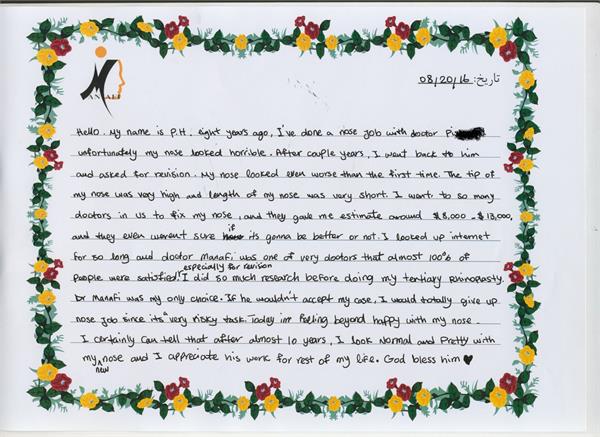 MANAFI
تاریخ: 08/20/16
Hello. My name is P.H. eight years ago, I've done a nose job with doctor
unfortunately my nose looked horrible. After couple years, I went back to him
and asked for revision. My nose looked even worse than the first time. The tip of
my nose was very high and length of my nose was very short. I went to so many
doctors in us to fix my nose, and they gave me estimate around $8,000 - $13,000,
and they even werent sure if its gonna be better or not. I looked up internet
for so long and doctor Manafi was one of very doctors that almost 100% of
people were satisfied! especially for revision I did so much research before doing my tertiary Rhinoplasty.
Dr Manafi was my only choice. If he wouldn't accept my case, I would totally give up
nose job since its a very risky task. Today im feeling beyond happy with my nose.
I certainly can tell that after almost 10 years, I look normal and pretty with
my new nose and I appreciate his work for rest of my life. God bless him ♥